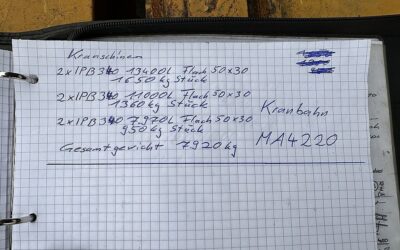 Kranschinen
2x IPB340 13400L Flach 50x30
1650 kg Stück
2x IPB340 11000L Flach 50x30
1360 kg Stück
2x IPB340 7970L Flach 50x30
950 kg Stück
Gesamtgewicht 7920 kg
Kranbahn
MA4220